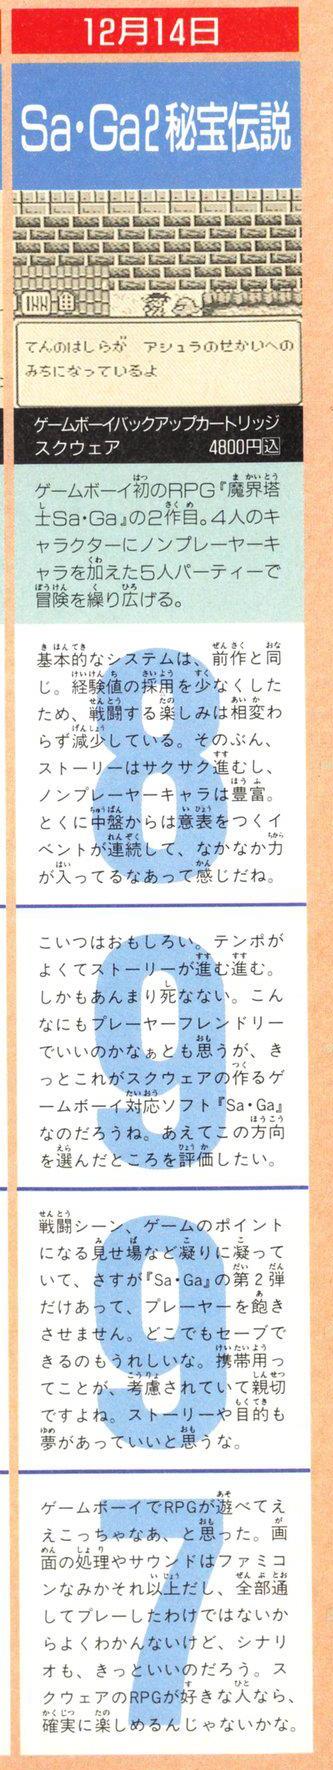 12月14日
Sa・Ga2秘宝伝説
INN
てんのはしらが　アシュラのせかいへの
みちになっているよ
ゲームボーイバックアップカートリッジ
スクウェア　4800円込
ゲームボーイ初のRPG『魔界塔
士Sa・Ga』の2作目。4人のキ
ャラクターにノンプレーヤーキ
ャラを加えた5人パーティーで
冒険を繰り広げる。
8
基本的なシステムは、前作と同
じ。経験値の採用を少なくした
ため、戦闘する楽しみは相変わ
らず減少している。そのぶん、
ストーリーはサクサク進むし、
ノンプレーヤーキャラは豊富。
とくに中盤からは意表をつくイ
ベントが連続して、なかなか力
が入ってるなあって感じだね。
9
こいつはおもしろい。テンポが
よくてストーリーが進む進む。
しかもあんまり死なない。こん
なにもプレーヤーフレンドリー
でいいのかなぁとも思うが、き
っとこれがスクウェアの作るゲ
ームボーイ対応ソフト『Sa・Ga』
なのだろうね。あえてこの方向
を選んだところを評価したい。
9
戦闘シーン、ゲームのポイント
になる見せ場など凝りに凝って
いて、さすが『Sa・Ga』の第2弾
だけあって、プレーヤーを飽き
させません。どこでもセーブで
きるのもうれしいな。携帯用っ
てことが、考慮されていて親切
ですよね。ストーリーや目的も
夢があっていいと思うな。
7
ゲームボーイでRPGが遊べてえ
えこっちゃなあ、と思った。画
面の処理やサウンドはファミコ
ンなみかそれ以上だし、全部通
してプレーしたわけではないか
らよくわかんないけど、シナリ
オも、きっといいのだろう。ス
クウェアのRPGが好きな人なら、
確実に楽しめるんじゃないかな。